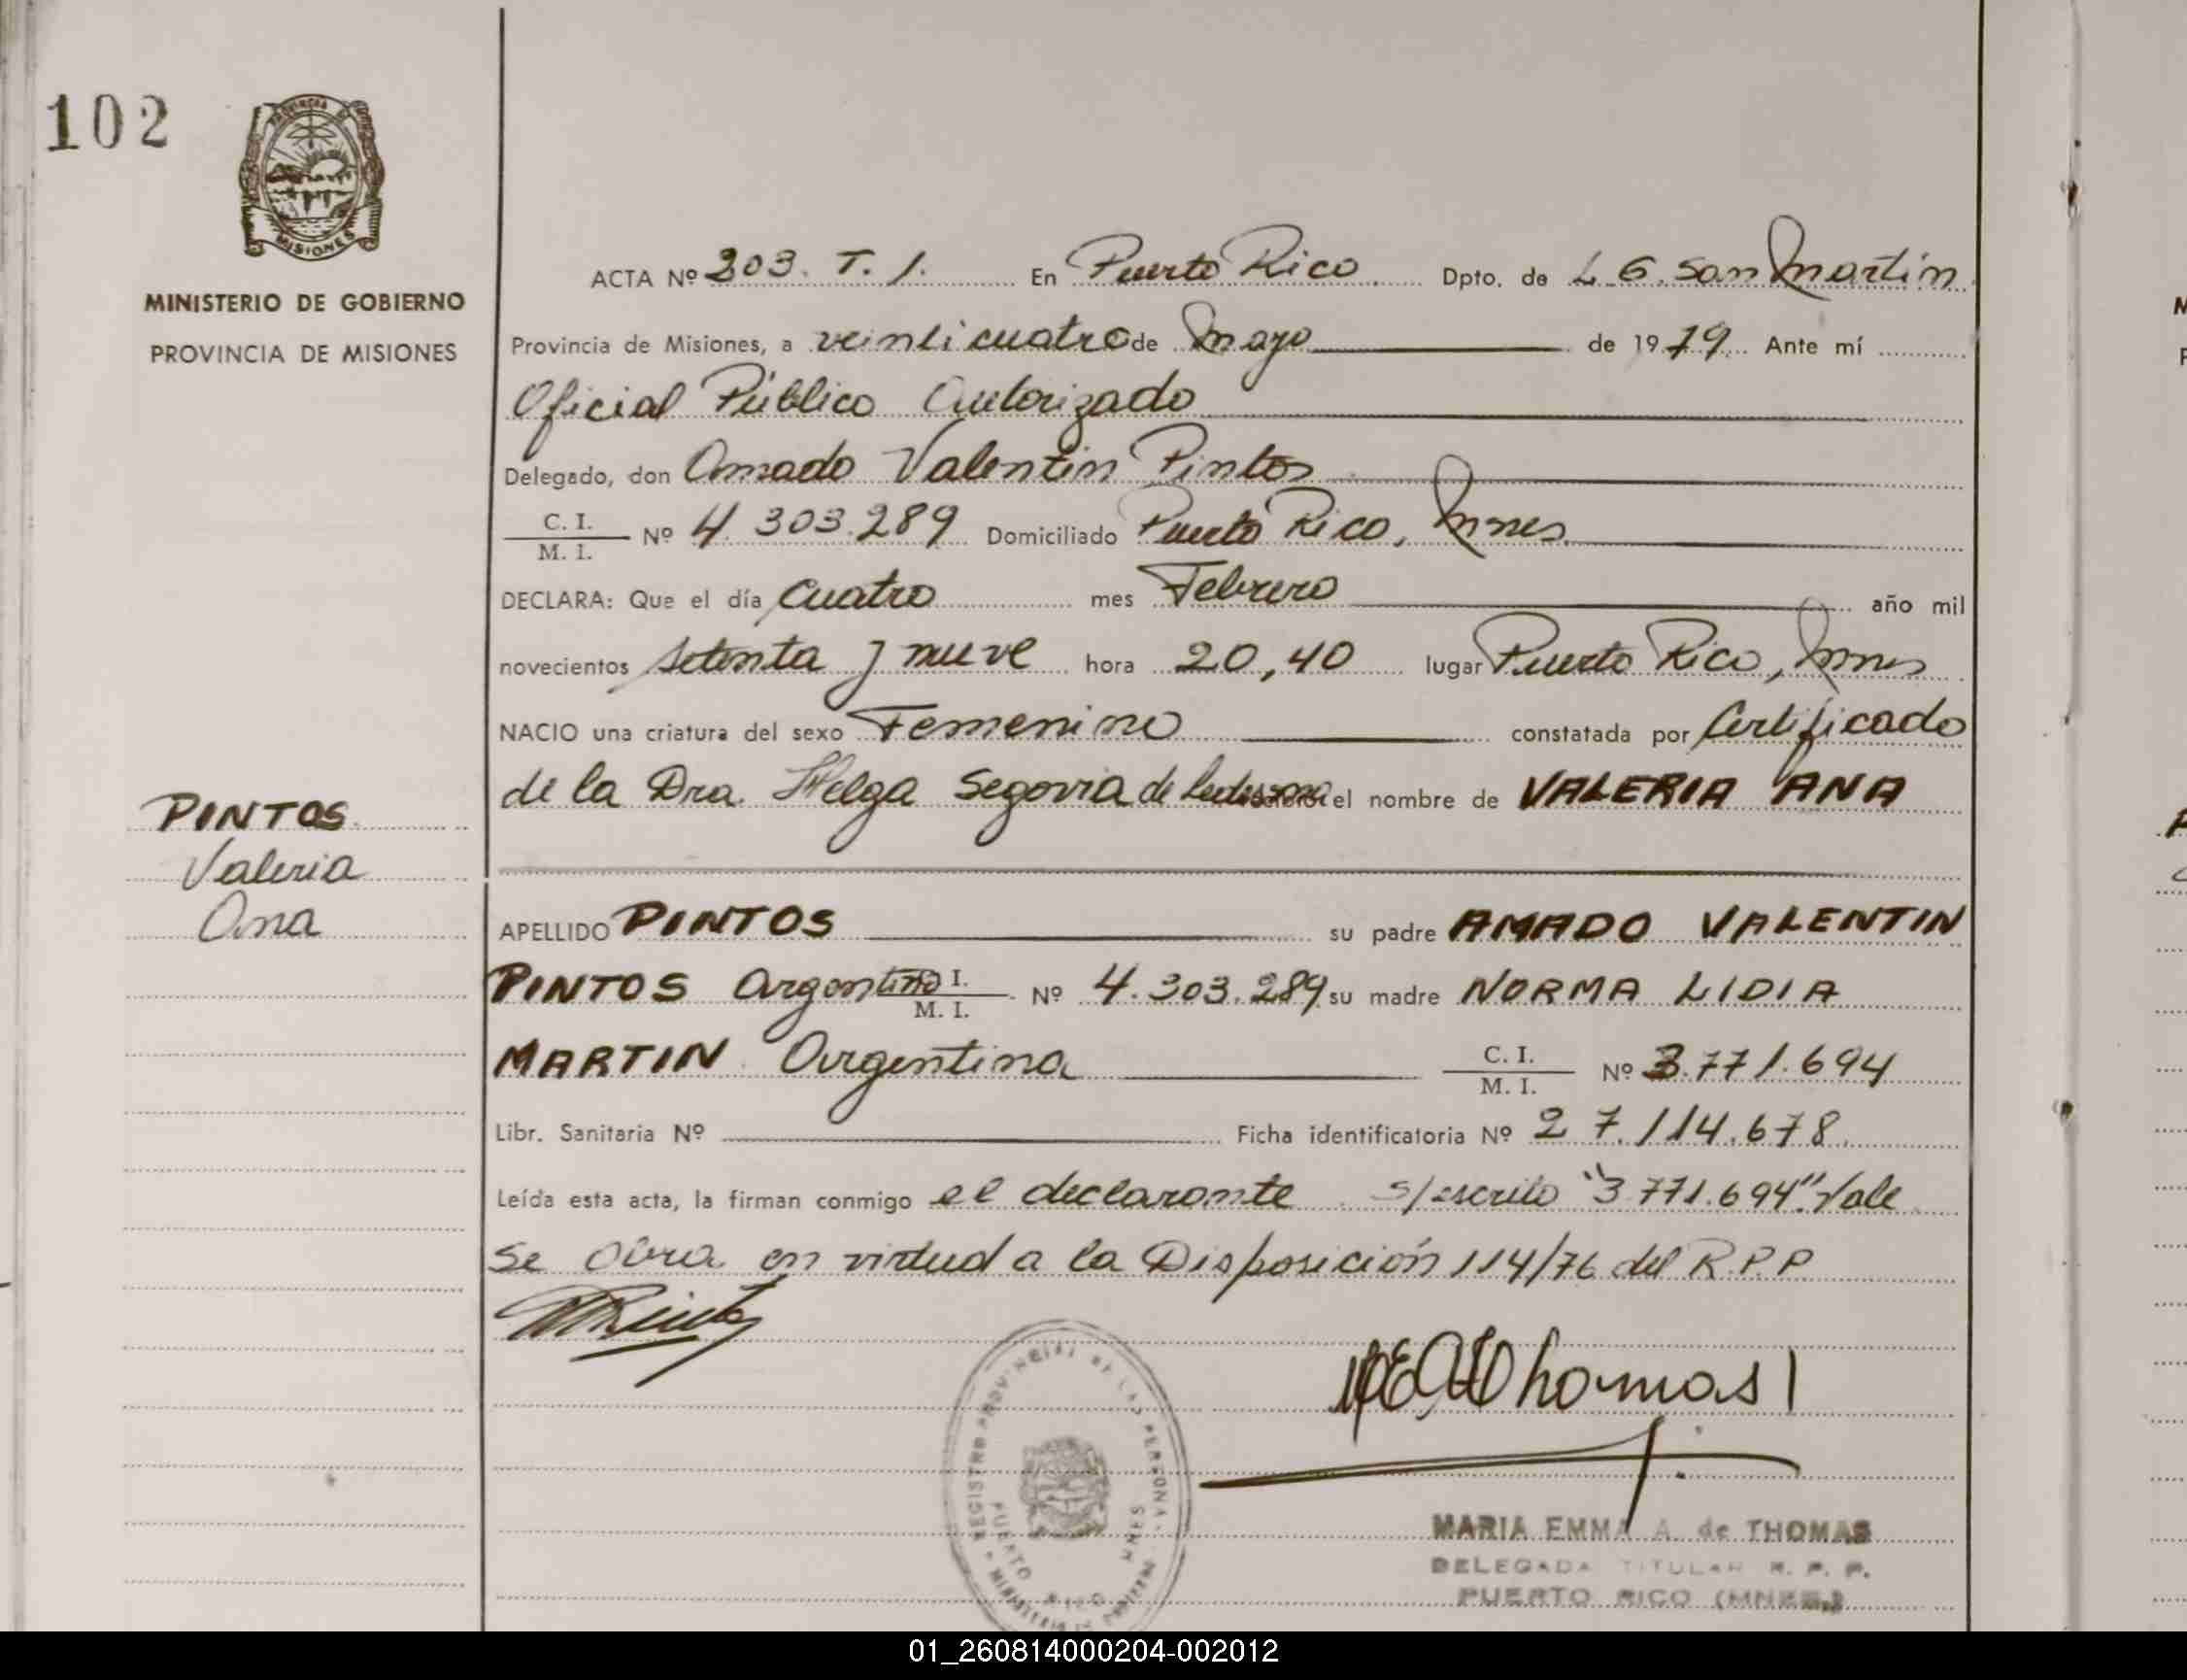 102
PROVINCIA DE
MISIONES
MINISTERIO DE GOBIERNO
PROVINCIA DE MISIONES
ACTA Nº 203. T. 1. En Puerto Rico Dpto. de L. G. San Martín
Provincia de Misiones, a veinticuatro de Mayo de 1979 Ante mí
Oficial Público Autorizado
Delegado, don Amado Valentín Pintos
C. I.
M. I. Nº 4.303.289 Domiciliado Puerto Rico, Mnes
DECLARA: Que el día Cuatro mes Febrero año mil
novecientos setenta y nueve hora 20,40 lugar Puerto Rico, Mnes
NACIO una criatura del sexo Femenino constatada por Certificado
de la Dra. Helga Segovia de Ledesma el nombre de VALERIA ANA
PINTOS
Valeria
Ana
APELLIDO PINTOS su padre AMADO VALENTIN
PINTOS Argentino C. I.
M. I. Nº 4.303.289 su madre NORMA LIDIA
MARTIN Argentina C. I.
M. I. Nº 3.771.694
Libr. Sanitaria Nº Ficha identificatoria Nº 27.114.678
Leída esta acta, la firman conmigo el declarante s/escrito "3.771.694" Vale
Se obra en virtud a la Disposición 114/76 del R.P.P
Thomas
REGISTRO PROVINCIAL DE LAS PERSONAS
PUERTO RICO MNES
MINISTERIO DE GOBIERNO
MARIA EMMA A. de THOMAS
DELEGADA TITULAR R. P. P.
PUERTO RICO (MNES.)
01_260814000204-002012